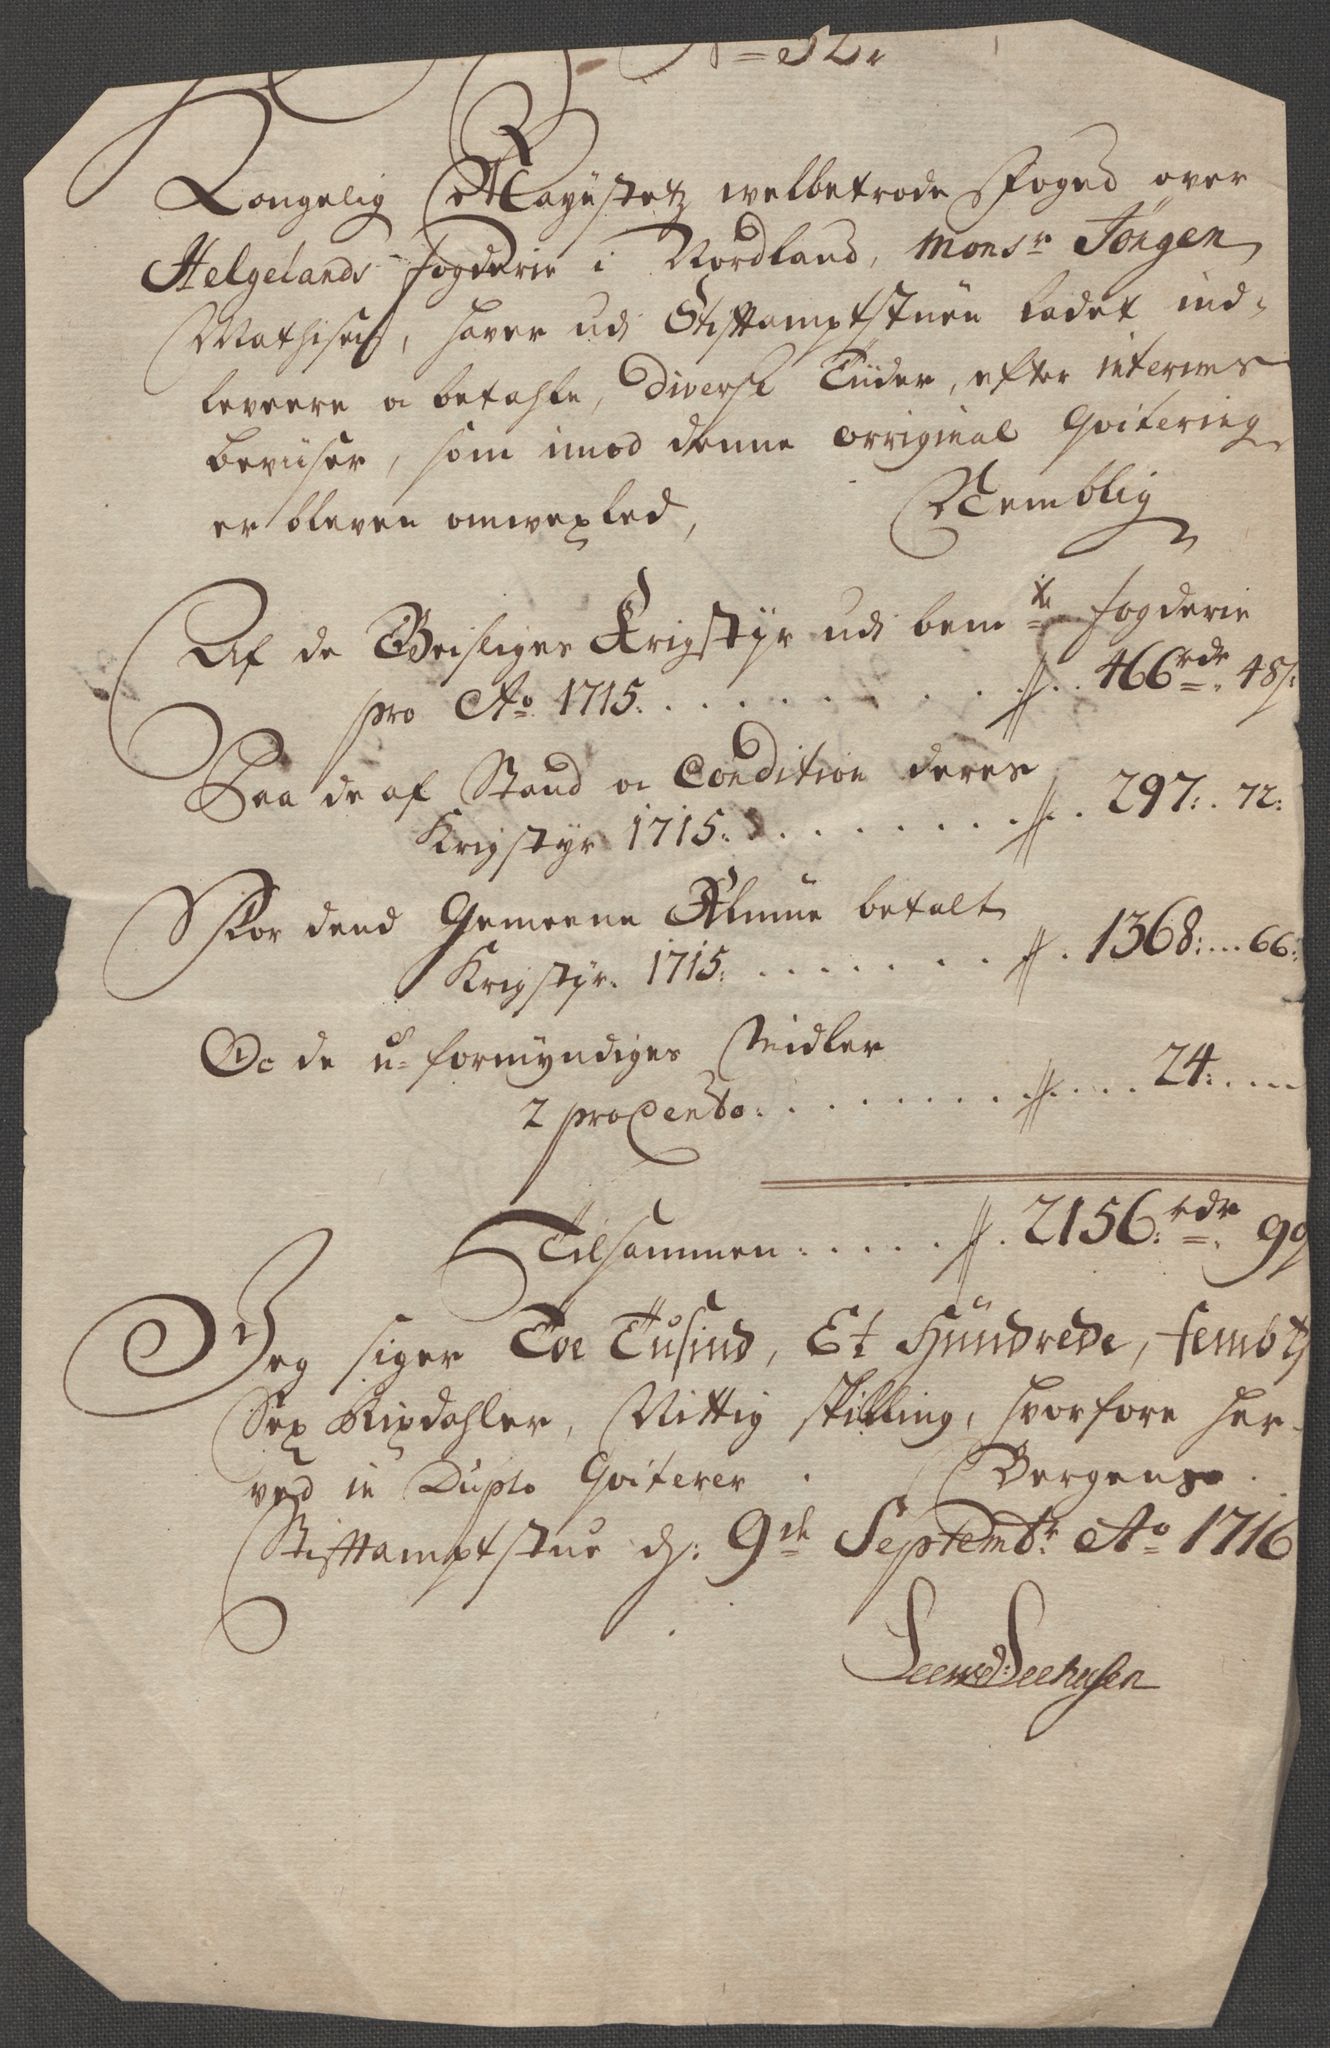 N = 32.
Kongelig Mayistetz welbetrode Foged over
Helgelands fogderie i Nordland, Monsr Jörgen
Mathisen, haver udi Stiftamptstuen ladet ind-
levere oc betahle, diverse Tiider, efter interims
beviiser, som imod denne orriginal Qvitering
er bleven omvexled, Nemblig
Af de Geistliges Krigstyr udi bemte fogderie
pro Ao 1715. . . . . . . . . . 466 rdr 48 s:
Paa de af Stand oc Condition deres
Krigstyr 1715: . . . . . . . . 297: . 72:
For dend Gemeene Almue betalt
Krigstyr. 1715: . . . . . . . 1368: ... 66:
Oc de u-formyndiges Midler
2 pro Cento: . . . . . . . . . 24: . . . .
Tilsammen: . . . . . 2156: rdr 90
Jeg siger Toe Tusind, Et Hundrede, fembti
Sex Rixdahler, Nittig skilling, hvorfore her-
ved in Duplo Qviterer . Bergens
Stiftamptstue d: 9de Septembr. Ao 1716
Seehusen